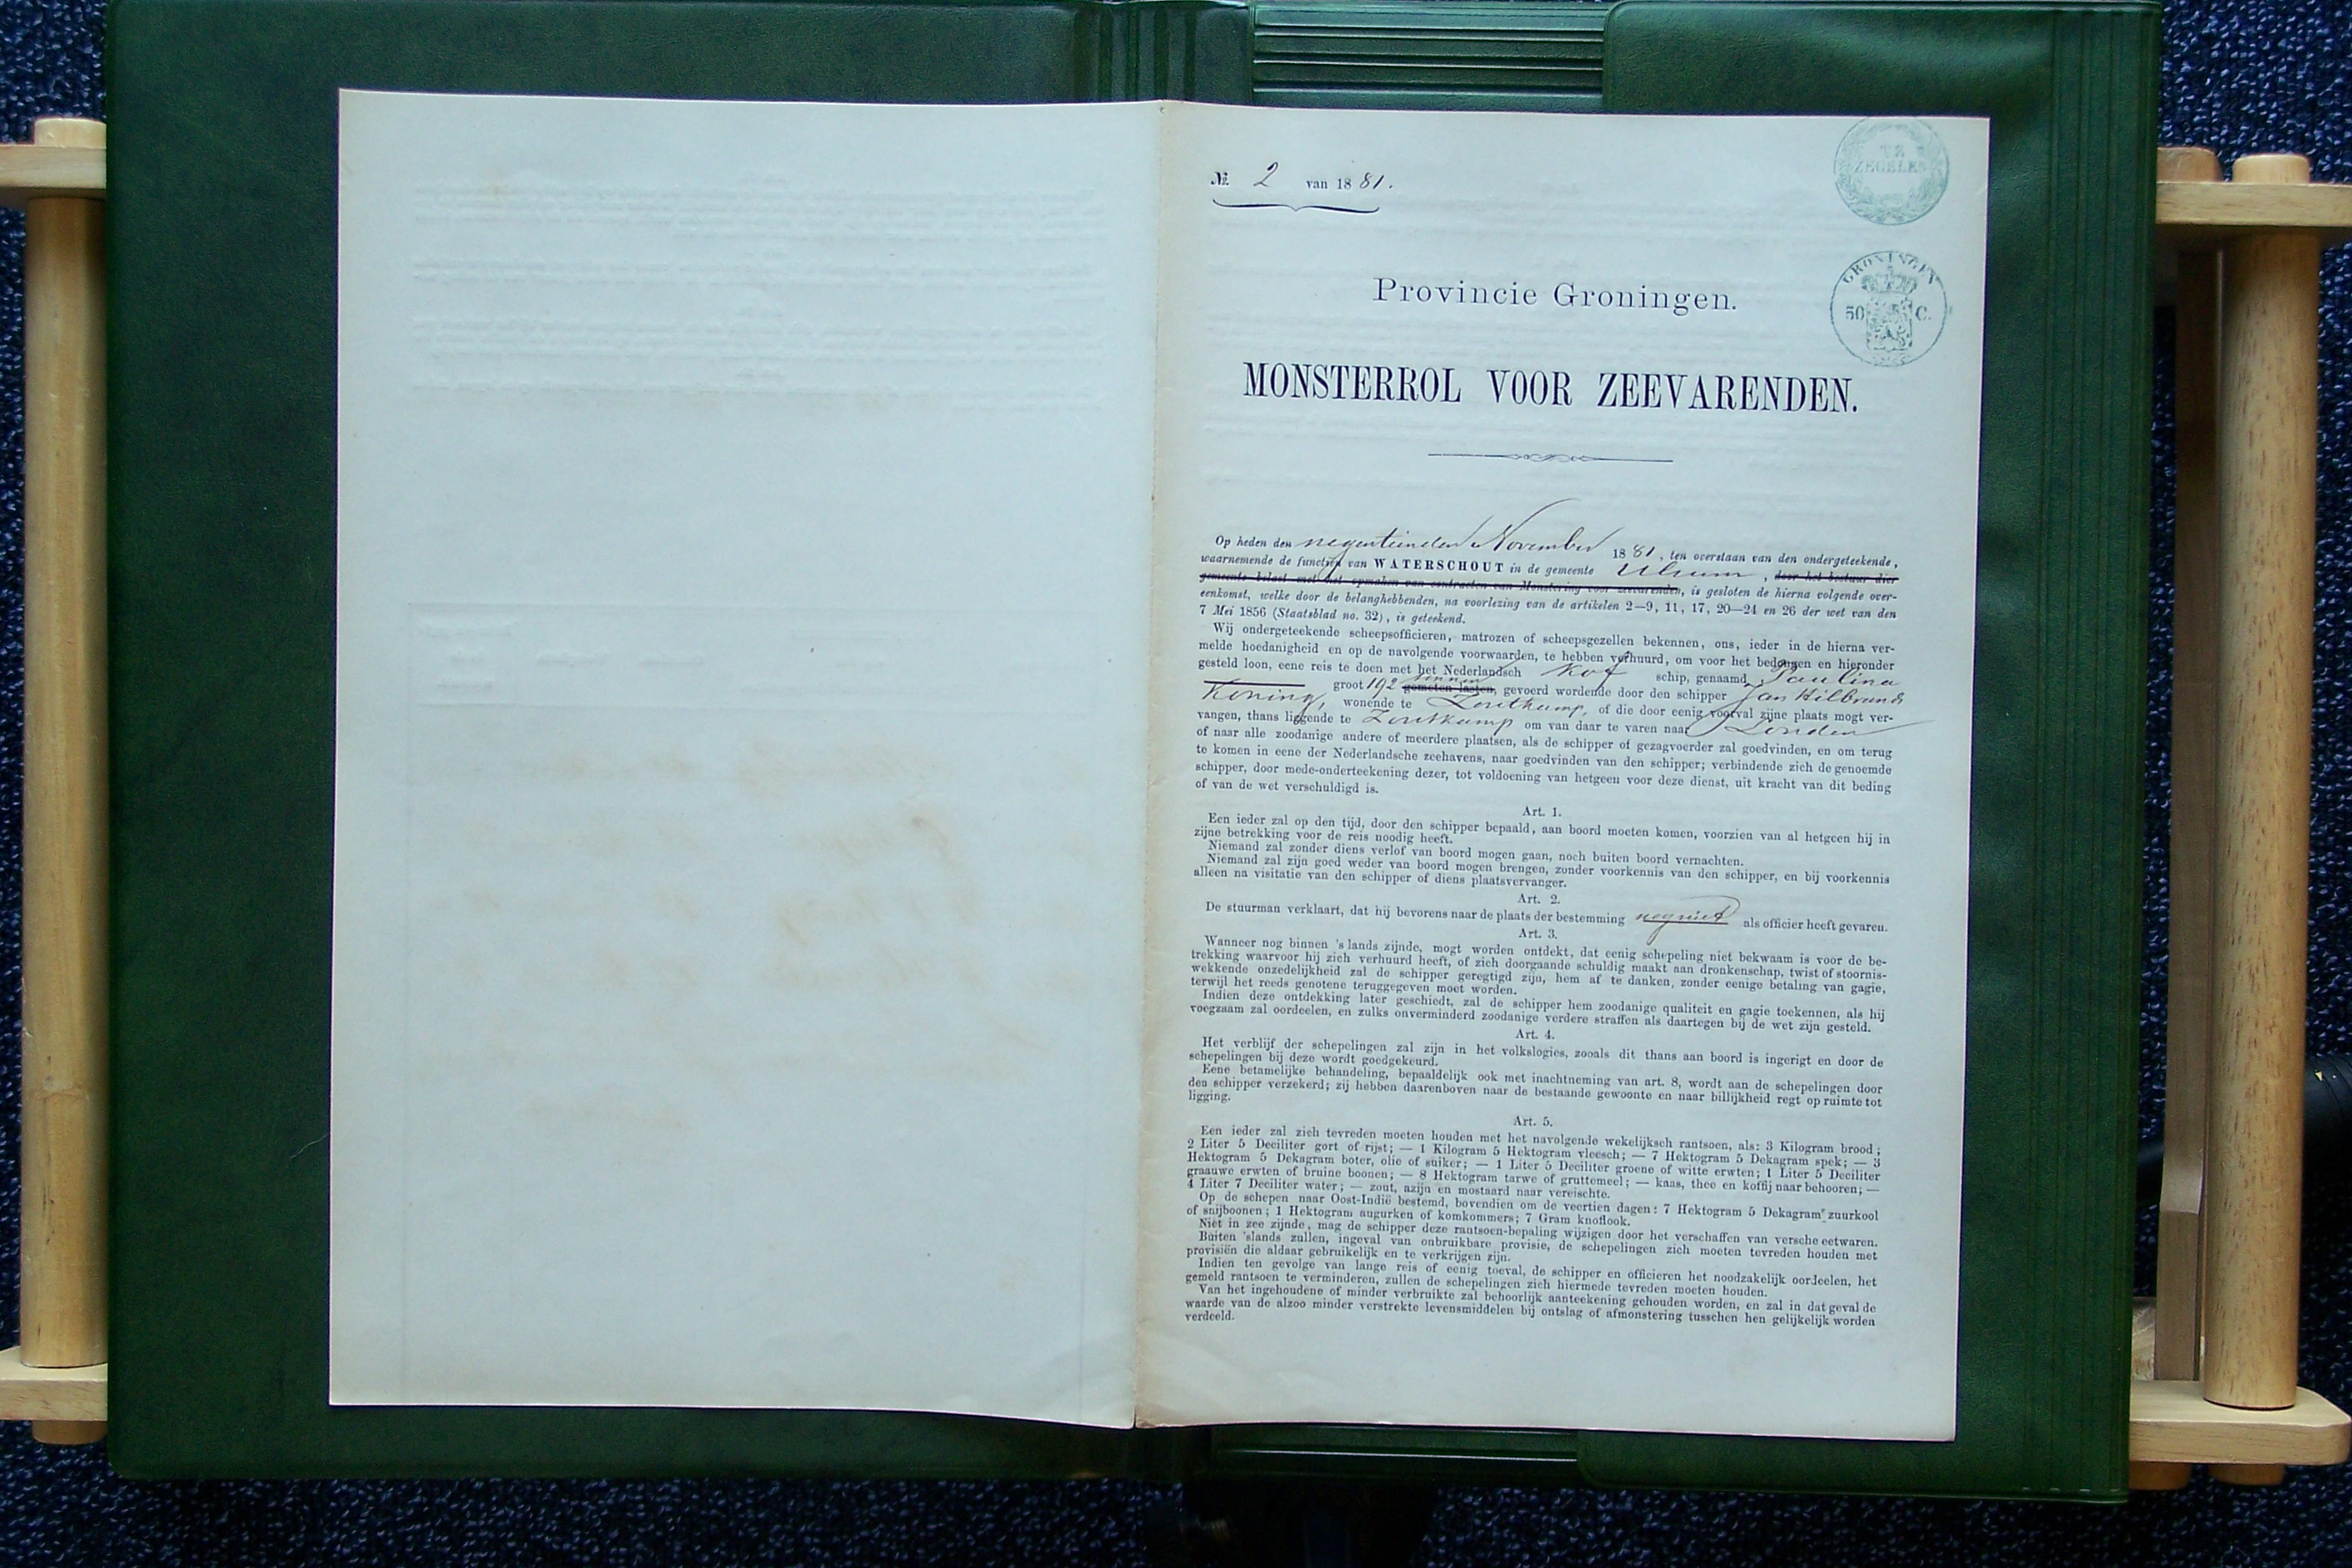 №. 2 van 1881.
TE
ZEGELEN
GRONINGEN
50 C.
Provincie Groningen.
MONSTERROL VOOR ZEEVARENDEN.
Op heden den negentienden November 1881, ten overstaan van den ondergeteekende,
waarnemende de functien van WATERSCHOUT in de gemeente Ulrum, door het bestuur dier
gemeente belast met het opmaken van contracten van Monstering voor zeevarenden, is gesloten de hierna volgende over-
eenkomst, welke door de belanghebbenden, na voorlezing van de artikelen 2—9, 11, 17, 20—24 en 26 der wet van den
7 Mei 1856 (Staatsblad no. 32), is geteekend.
Wij ondergeteekende scheepsofficieren, matrozen of scheepsgezellen bekennen, ons, ieder in de hierna ver-
melde hoedanigheid en op de navolgende voorwaarden, te hebben verhuurd, om voor het bedongen en hieronder
gesteld loon, eene reis te doen met het Nederlandsch Kof schip, genaamd Paulina
groot 192 tonnen gemeten lasten, gevoerd wordende door den schipper Jan Hilbrands
Koning, wonende te Zoutkamp, of die door eenig voorval zijne plaats mogt ver-
vangen, thans liggende te Zoutkamp om van daar te varen naar Londen
of naar alle zoodanige andere of meerdere plaatsen, als de schipper of gezagvoerder zal goedvinden, en om terug
te komen in eene der Nederlandsche zeehavens, naar goedvinden van den schipper; verbindende zich de genoemde
schipper, door mede-onderteekening dezer, tot voldoening van hetgeen voor deze dienst, uit kracht van dit beding
of van de wet verschuldigd is.
Art. 1.
Een ieder zal op den tijd, door den schipper bepaald, aan boord moeten komen, voorzien van al hetgeen hij in
zijne betrekking voor de reis noodig heeft.
Niemand zal zonder diens verlof van boord mogen gaan, noch buiten boord vernachten.
Niemand zal zijn goed weder van boord mogen brengen, zonder voorkennis van den schipper, en bij voorkennis
alleen na visitatie van den schipper of diens plaatsvervanger.
Art. 2.
De stuurman verklaart, dat hij bevorens naar de plaats der bestemming nog niet als officier heeft gevaren.
Art. 3.
Wanneer nog binnen 's lands zijnde, mogt worden ontdekt, dat eenig schepeling niet bekwaam is voor de be-
trekking waarvoor hij zich verhuurd heeft, of zich doorgaande schuldig maakt aan dronkenschap, twist of stoornis-
wekkende onzedelijkheid zal de schipper geregtigd zijn, hem af te danken, zonder eenige betaling van gagie,
terwijl het reeds genotene teruggegeven moet worden.
Indien deze ontdekking later geschiedt, zal de schipper hem zoodanige qualiteit en gagie toekennen, als hij
voegzaam zal oordeelen, en zulks onverminderd zoodanige verdere straffen als daartegen bij de wet zijn gesteld.
Art. 4.
Het verblijf der schepelingen zal zijn in het volkslogies, zooals dit thans aan boord is ingerigt en door de
schepelingen bij deze wordt goedgekeurd.
Eene betamelijke behandeling, bepaaldelijk ook met inachtneming van art. 8, wordt aan de schepelingen door
den schipper verzekerd; zij hebben daarenboven naar de bestaande gewoonte en naar billijkheid regt op ruimte tot
ligging.
Art. 5.
Een ieder zal zich tevreden moeten houden met het navolgende wekelijksch rantsoen, als: 3 Kilogram brood;
2 Liter 5 Deciliter gort of rijst; — 1 Kilogram 5 Hektogram vleesch; — 7 Hektogram 5 Dekagram spek; — 3
Hektogram 5 Dekagram boter, olie of suiker; — 1 Liter 5 Deciliter groene of witte erwten; 1 Liter 5 Deciliter
graauwe erwten of bruine boonen; — 8 Hektogram tarwe of gruttemeel; — kaas, thee en koffij naar behooren; —
4 Liter 7 Deciliter water; — zout, azijn en mostaard naar vereischte.
Op de schepen naar Oost-Indië bestemd, bovendien om de veertien dagen: 7 Hektogram 5 Dekagram zuurkool
of snijboonen; 1 Hektogram augurken of komkommers; 7 Gram knoflook.
Niet in zee zijnde, mag de schipper deze rantsoen-bepaling wijzigen door het verschaffen van versche eetwaren.
Buiten 'slands zullen, ingeval van onbruikbare provisie, de schepelingen zich moeten tevreden houden met
provisiën die aldaar gebruikelijk en te verkrijgen zijn.
Indien ten gevolge van lange reis of eenig toeval, de schipper en officieren het noodzakelijk oordeelen, het
gemeld rantsoen te verminderen, zullen de schepelingen zich hiermede tevreden moeten houden.
Van het ingehoudene of minder verbruikte zal behoorlijk aanteekening gehouden worden, en zal in dat geval de
waarde van de alzoo minder verstrekte levensmiddelen bij ontslag of afmonstering tusschen hen gelijkelijk worden
verdeeld.